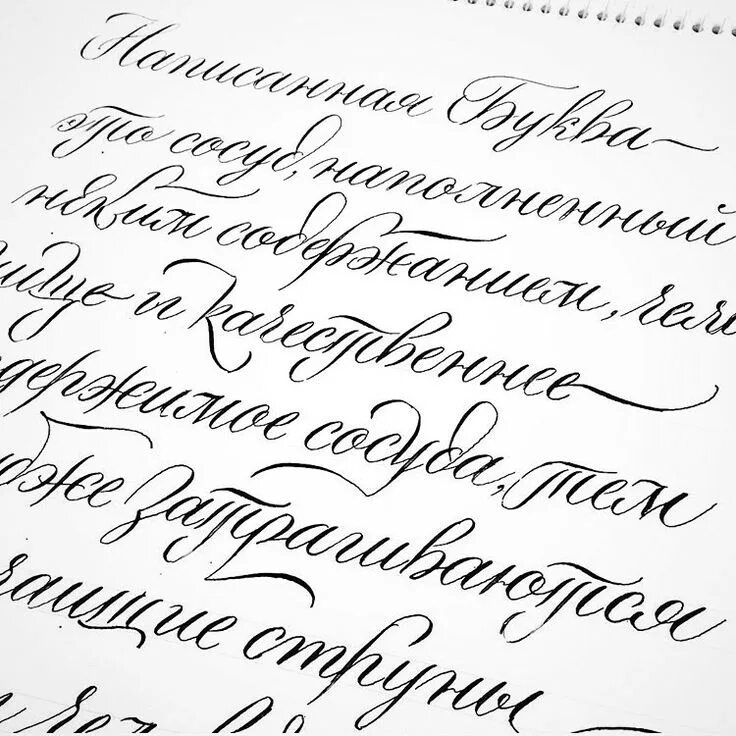 Написанная Буква—
это сосуд, наполненный
неким содержанием, чем
чище и качественнее
держимое сосуда, тем
бже затрагиваются
чащие струны